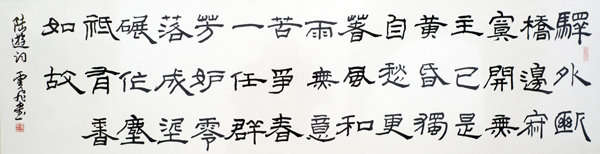 驛外斷
橋邊寂
寞開無
主已是
黃昏獨
自愁更
著風和
雨無意
苦爭春
一任群
芳妒零
落成埿
碾作塵
祗有香
如故
陸遊詞 雲書